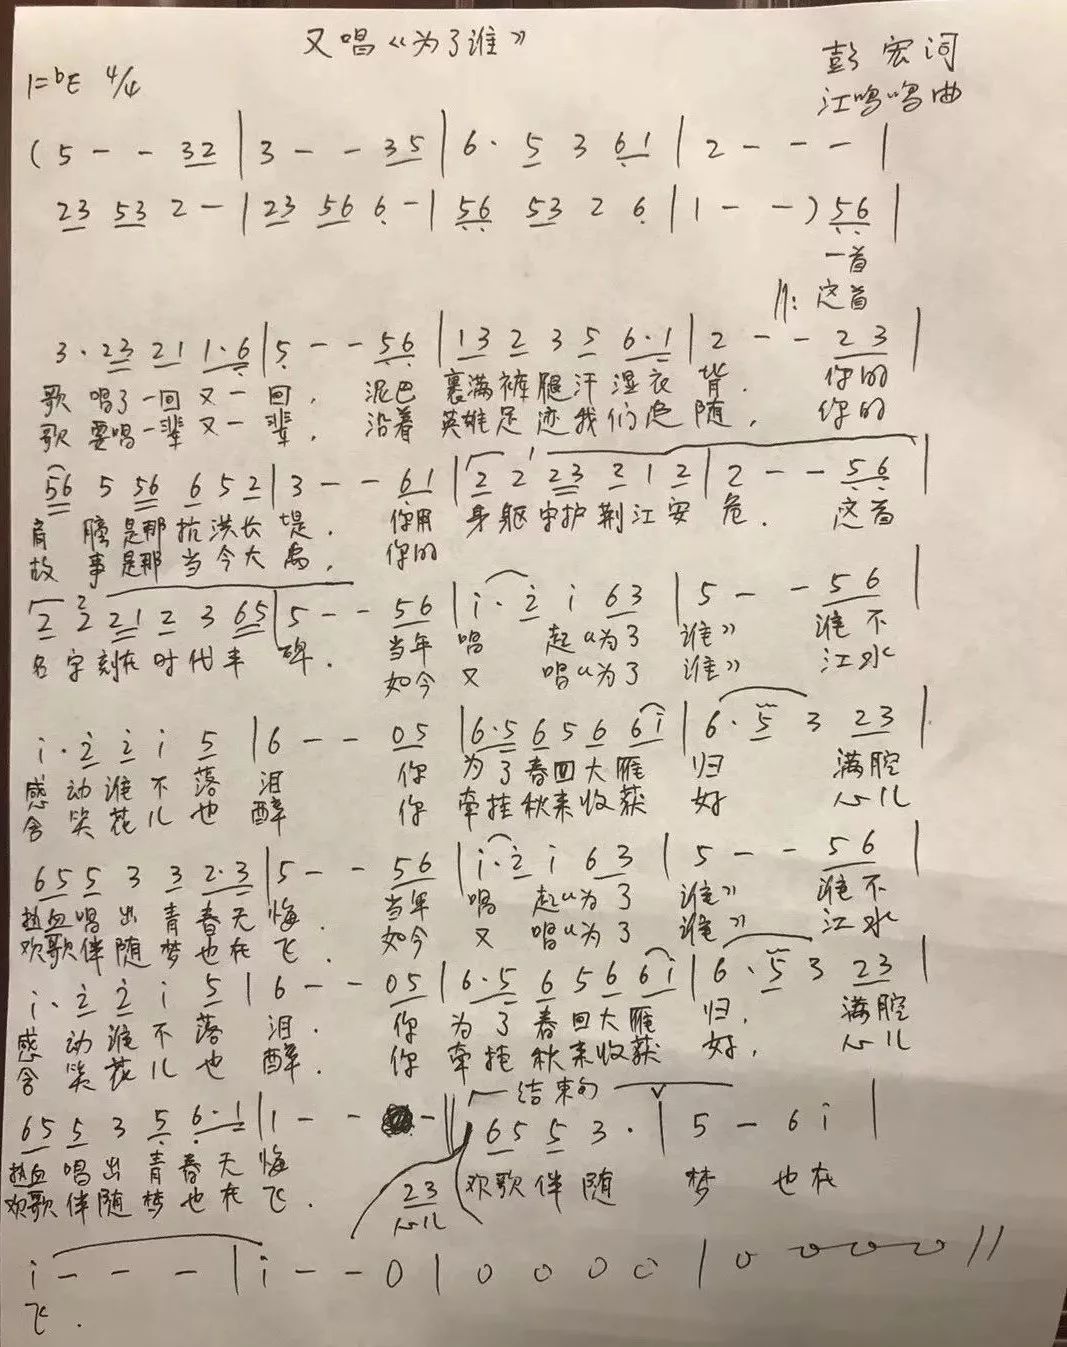 又唱《为了谁》
彭宏词
1=bE 4/4
江鸣鸣曲
(5 - - 32 | 3 - - 35 | 6· 5 3 61 | 2 - - - |
23 53 2 - | 23 56 6 - | 56 53 2 6 | 1 - - ) 56 |
一首
‖: 这首
3·23 21 1·6 | 5 - - 56 | 13 2 3 5 6·1 | 2 - - 23 |
歌 唱了一回又一回, 泥巴 裹满裤腿汗湿衣背. 你的
歌 要唱一辈又一辈, 沿着 英雄足迹我们追随, 你的
56 5 56 6 5 2 | 3 - - 61 | 2 2 23 2 1 2 | 2 - - 56 |
肩膀是那抗洪长堤. 你用 身躯守护荆江安危. 这首
故事是那当今大禹, 你的
2 2 21 2 3 65 | 5 - - 56 | i·2 i 63 | 5 - - 56 |
名字刻在时代丰碑. 当年 唱起“为了谁》 谁不
如今 又唱“为了谁》 江水
i·2 2 i 5 | 6 - - 05 | 6·5 6 5 6 6i | 6·5 3 23 |
感动谁不落泪 你 为了春回大雁 归 满腔
含笑花儿也醉 你 牵挂秋来收获 好 心儿
65 5 3 3 2·3 | 5 - - 56 | i·2 i 63 | 5 - - 56 |
热血唱出青春无悔 当年 唱起“为了谁》 谁不
欢歌伴随梦也在飞. 如今 又唱“为了谁》 江水
i·2 2 i 5 | 6 - - 05 | 6·5 6 5 6 6i | 6·5 3 23 |
感动谁不落泪. 你 为了春回大雁 归, 满腔
含笑花儿也醉. 你 牵挂秋来收获 好, 心儿
结束句
65 5 3 5 6·1 | 1 - - - ‖ 65 5 3· | 5 - 6 i |
热血唱出青春无悔
欢歌伴随梦也在飞. 23 欢歌伴随 梦 也在
心儿
i - - - | i - - 0 | 0 0 0 0 | 0 0 0 0 //
飞.